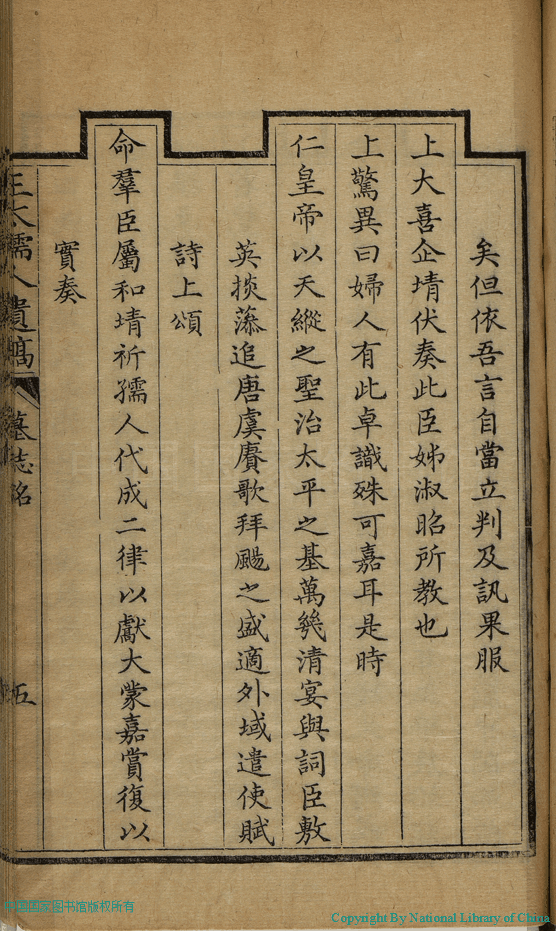 矣但依吾言自當立判及訊果服
上大喜企堉伏奏此臣姊淑昭所教也
上驚異曰婦人有此卓識殊可嘉耳是時
仁皇帝以天縱之聖治太平之基萬幾清宴與詞臣敷
英掞藻追唐虞賡歌拜颺之盛適外域遣使賦
詩上頌
命羣臣屬和堉祈孺人代成二律以獻大蒙嘉賞復以
實奏
王太孺人遺稿 墓志銘 五
中国国家图书馆版权所有
Copyright By National Library of China